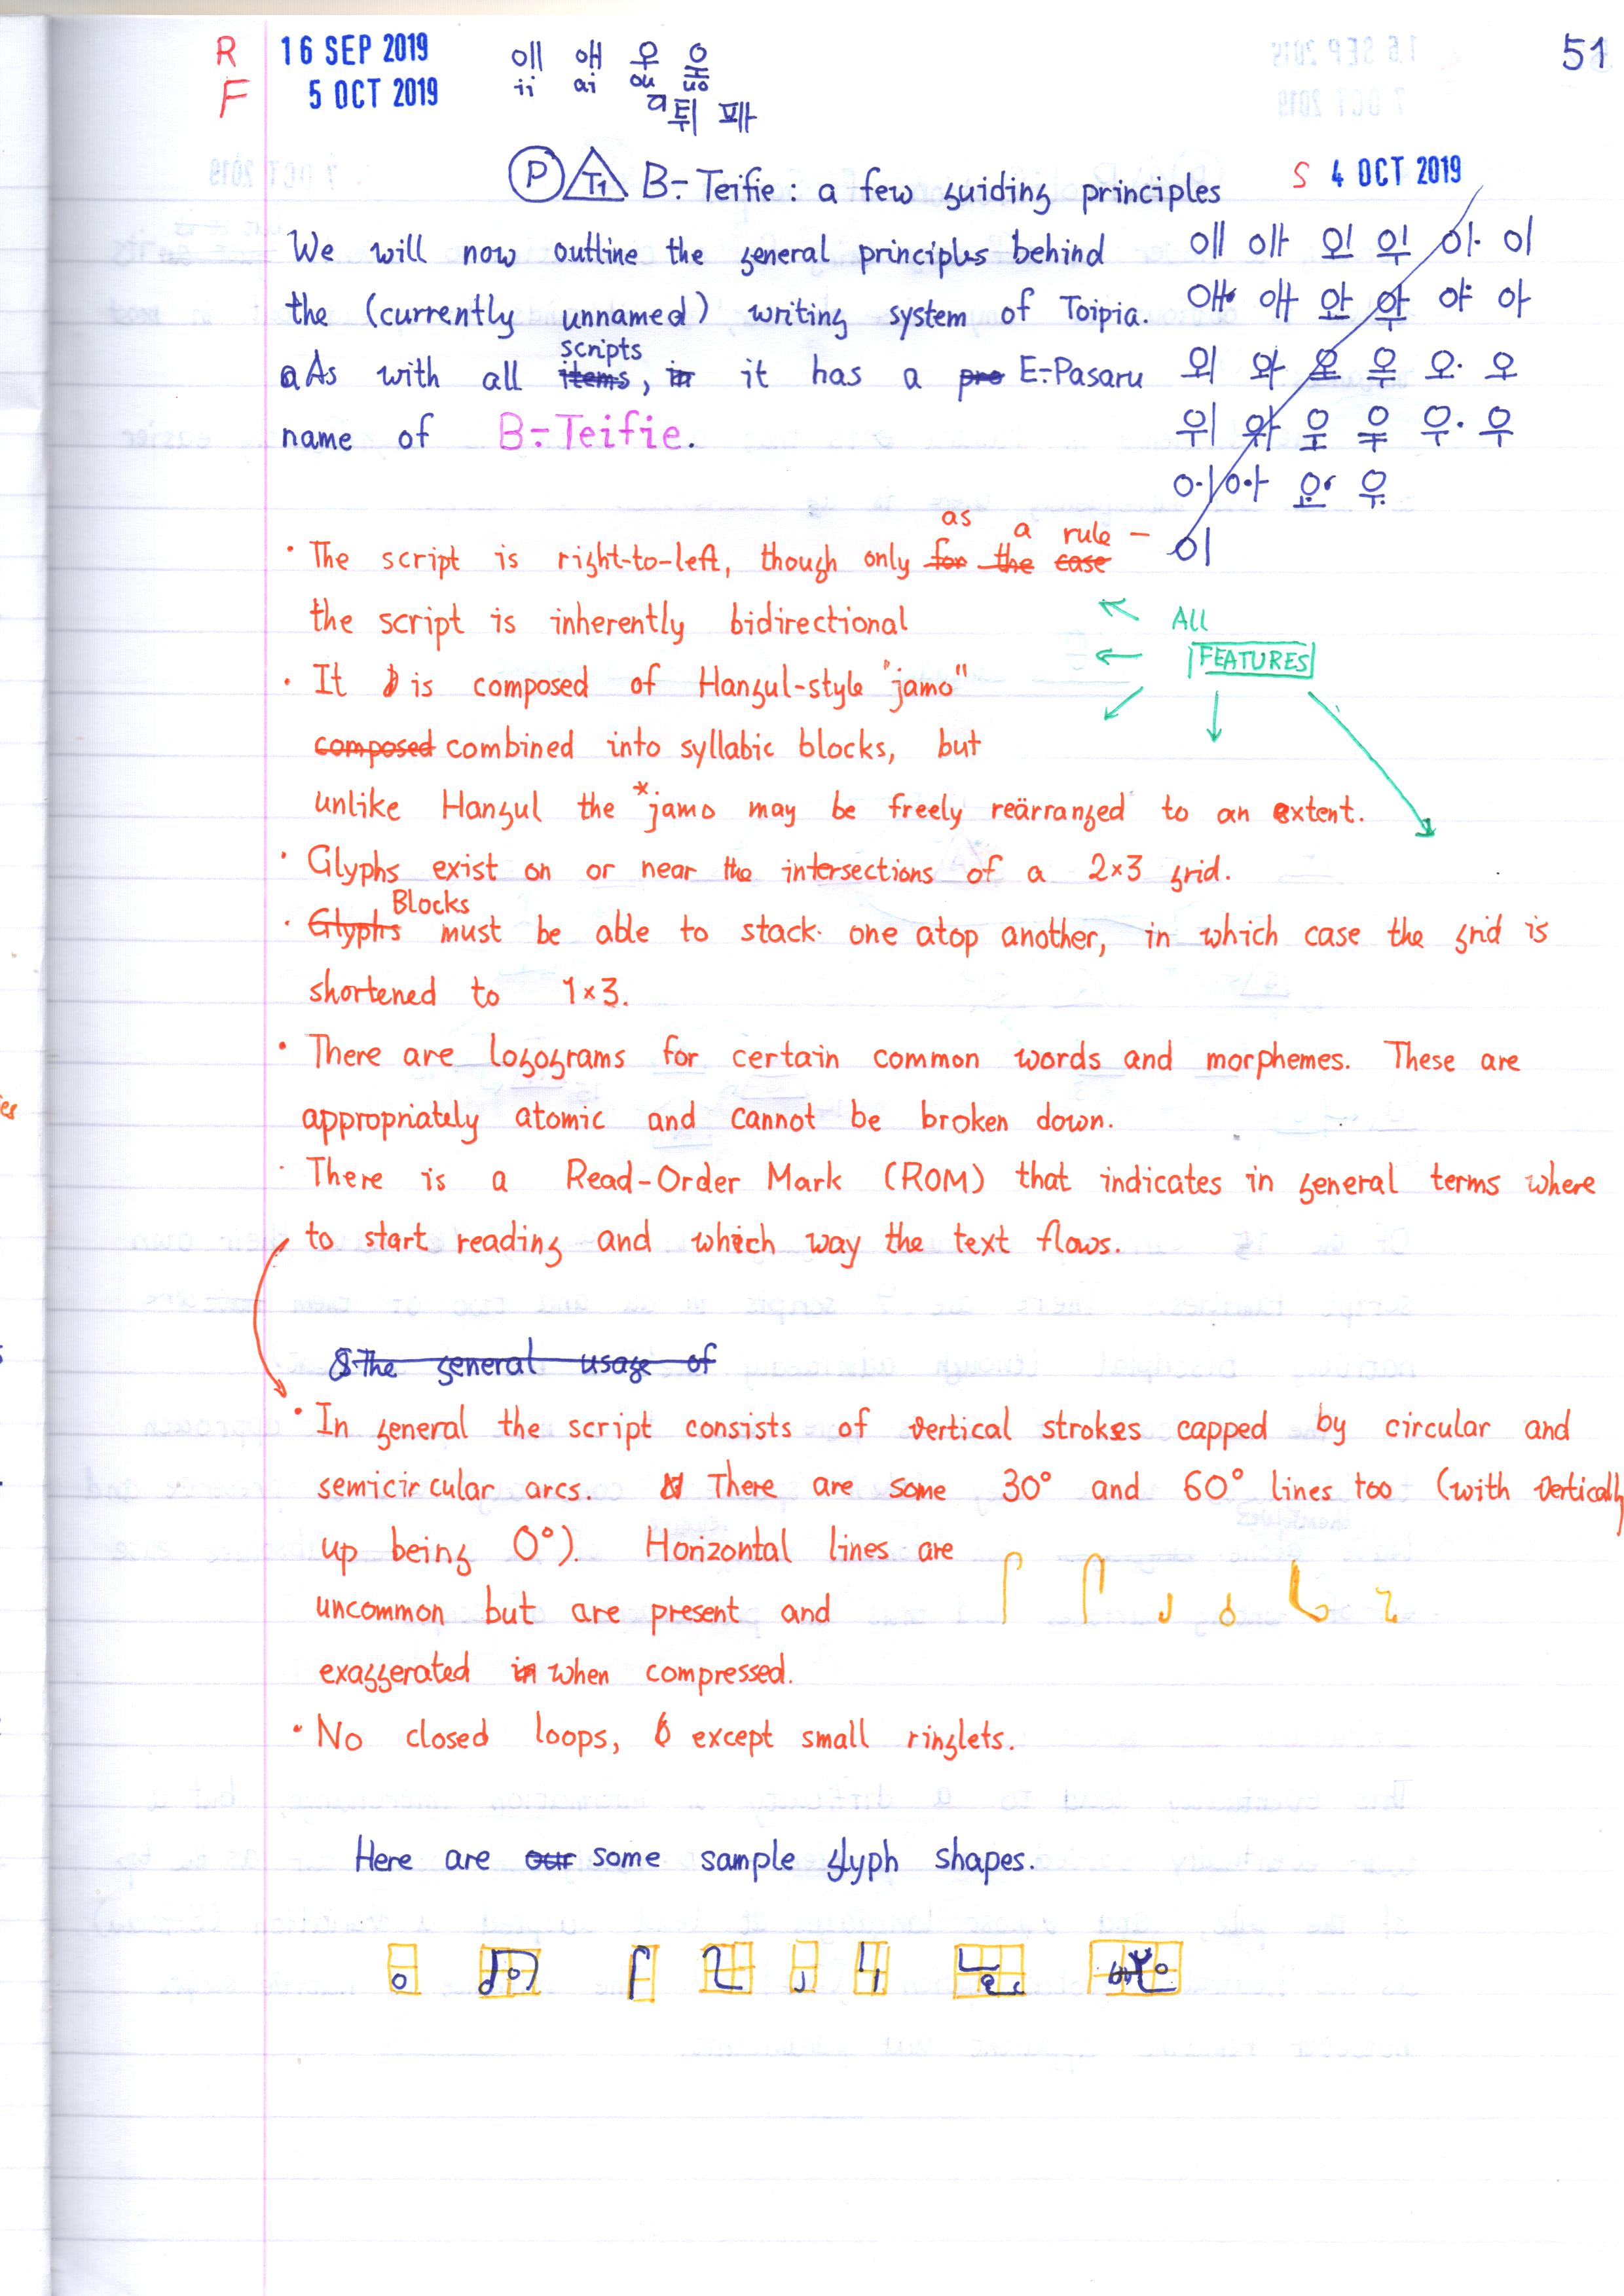 R 16 SEP 2019
F 5 OCT 2019
51
ii ai ou uo
P T1 B=Teifie: a few guiding principles
S 4 OCT 2019
We will now outline the general principles behind
the (currently unnamed) writing system of Toipia.
As with all items, scripts in it has a pro E=Pasaru
name of B=Teifie.
· The script is right-to-left, though only for the case as a rule –
the script is inherently bidirectional
All
FEATURES
· It is composed of Hangul-style "jamo"
composed combined into syllabic blocks, but
unlike Hangul the *jamo may be freely reärranged to an extent.
· Glyphs exist on or near the intersections of a 2×3 grid.
· Glyphs Blocks must be able to stack one atop another, in which case the grid is
shortened to 1×3.
· There are logograms for certain common words and morphemes. These are
appropriately atomic and cannot be broken down.
· There is a Read-Order Mark (ROM) that indicates in general terms where
to start reading and which way the text flows.
The general usage of
· In general the script consists of vertical strokes capped by circular and
semicircular arcs. There are some 30° and 60° lines too (with vertically
up being 0°). Horizontal lines are
uncommon but are present and
exaggerated in when compressed.
· No closed loops, except small ringlets.
Here are our some sample glyph shapes.